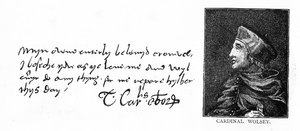 Myn owne entirly belovyd cromwell
I beseche yow as ye love me and wyl
evyr do any thyng for me repare hyther
thys day
T Carlis Ebor
CARDINAL WOLSEY.